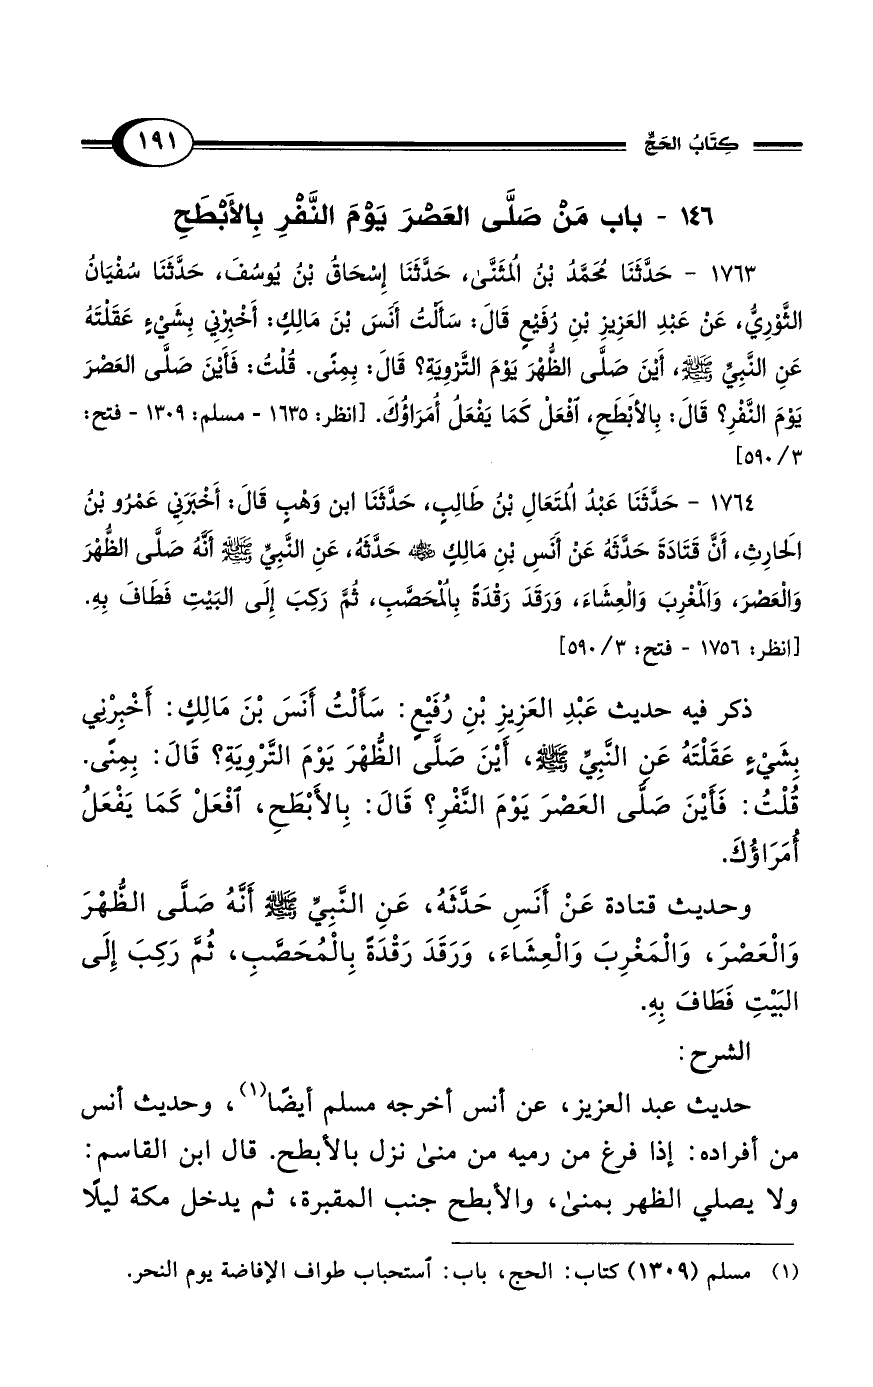 كِتَابُ الحَجِّ
١٩١
١٤٦ - باب مَنْ صَلَّى العَصْرَ يَوْمَ النَّفْرِ بِالأَبْطَحِ
١٧٦٣ - حَدَّثَنَا مُحَمَّدُ بْنُ المُثَنَّىٰ، حَدَّثَنَا إِسْحَاقُ بْنُ يُوسُفَ، حَدَّثَنَا سُفْيَانُ
الثَّوْرِيُّ، عَنْ عَبْدِ العَزِيزِ بْنِ رُفَيْعٍ قَالَ: سَأَلْتُ أَنَسَ بْنَ مَالِكٍ: أَخْبِرْنِي بِشَيْءٍ عَقَلْتَهُ
عَنِ النَّبِيِّ ﷺ، أَيْنَ صَلَّى الظُّهْرَ يَوْمَ التَّرْوِيَةِ؟ قَالَ: بِمِنًى. قُلْتُ: فَأَيْنَ صَلَّى العَصْرَ
يَوْمَ النَّفْرِ؟ قَالَ: بِالأَبْطَحِ، ٱفْعَلْ كَمَا يَفْعَلُ أُمَرَاؤُكَ. [انظر: ١٦٣٥ - مسلم: ١٣٠٩ - فتح:
٣/ ٥٩٠]
١٧٦٤ - حَدَّثَنَا عَبْدُ المُتَعَالِ بْنُ طَالِبٍ، حَدَّثَنَا ابن وَهْبٍ قَالَ: أَخْبَرَنِي عَمْرُو بْنُ
الحَارِثِ، أَنَّ قَتَادَةَ حَدَّثَهُ عَنْ أَنَسِ بْنِ مَالِكٍ ﵁ حَدَّثَهُ، عَنِ النَّبِيِّ ﷺ أَنَّهُ صَلَّى الظُّهْرَ
وَالْعَصْرَ، وَالمَغْرِبَ وَالْعِشَاءَ، وَرَقَدَ رَقْدَةً بِالْمُحَصَّبِ، ثُمَّ رَكِبَ إِلَى البَيْتِ فَطَافَ بِهِ.
[انظر: ١٧٥٦ - فتح: ٣/ ٥٩٠]
ذكر فيه حديث عَبْدِ العَزِيزِ بْنِ رُفَيْعٍ: سَأَلْتُ أَنَسَ بْنَ مَالِكٍ: أَخْبِرْنِي
بِشَيْءٍ عَقَلْتَهُ عَنِ النَّبِيِّ ﷺ، أَيْنَ صَلَّى الظُّهْرَ يَوْمَ التَّرْوِيَةِ؟ قَالَ: بِمِنًى.
قُلْتُ: فَأَيْنَ صَلَّى العَصْرَ يَوْمَ النَّفْرِ؟ قَالَ: بِالأَبْطَحِ، ٱفْعَلْ كَمَا يَفْعَلُ
أُمَرَاؤُكَ.
وحديث قتادة عَنْ أَنَسِ حَدَّثَهُ، عَنِ النَّبِيِّ ﷺ أَنَّهُ صَلَّى الظُّهْرَ
وَالْعَصْرَ، وَالْمَغْرِبَ وَالْعِشَاءَ، وَرَقَدَ رَقْدَةً بِالْمُحَصَّبِ، ثُمَّ رَكِبَ إِلَى
البَيْتِ فَطَافَ بِهِ.
الشرح:
حديث عبد العزيز، عن أنس أخرجه مسلم أيضًا(١)، وحديث أنس
من أفراده: إذا فرغ من رميه من منىٰ نزل بالأبطح. قال ابن القاسم:
ولا يصلي الظهر بمنىٰ، والأبطح جنب المقبرة، ثم يدخل مكة ليلًا
(١) مسلم (١٣٠٩) كتاب: الحج، باب: ٱستحباب طواف الإفاضة يوم النحر.